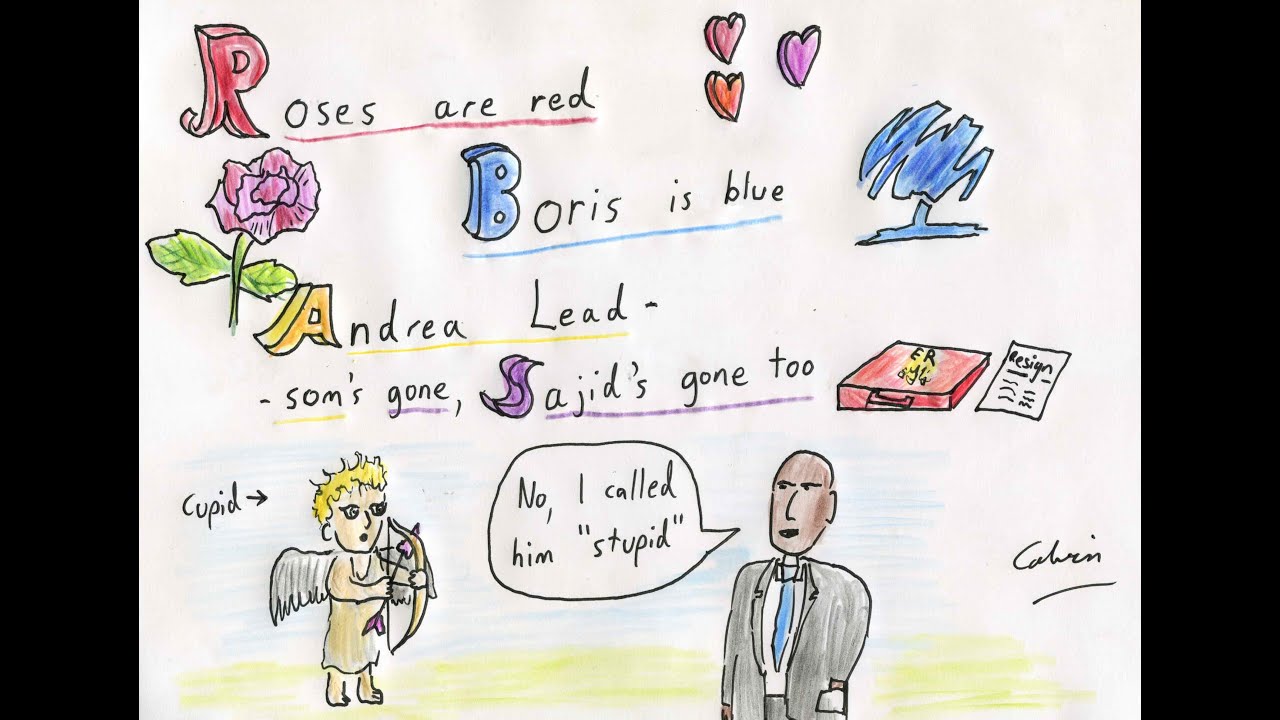 Roses are red
Boris is blue
Andrea Lead-
-som's gone, Sajid's gone too
ER
Resign
Cupid →
No, I called
him "stupid"
Calvin